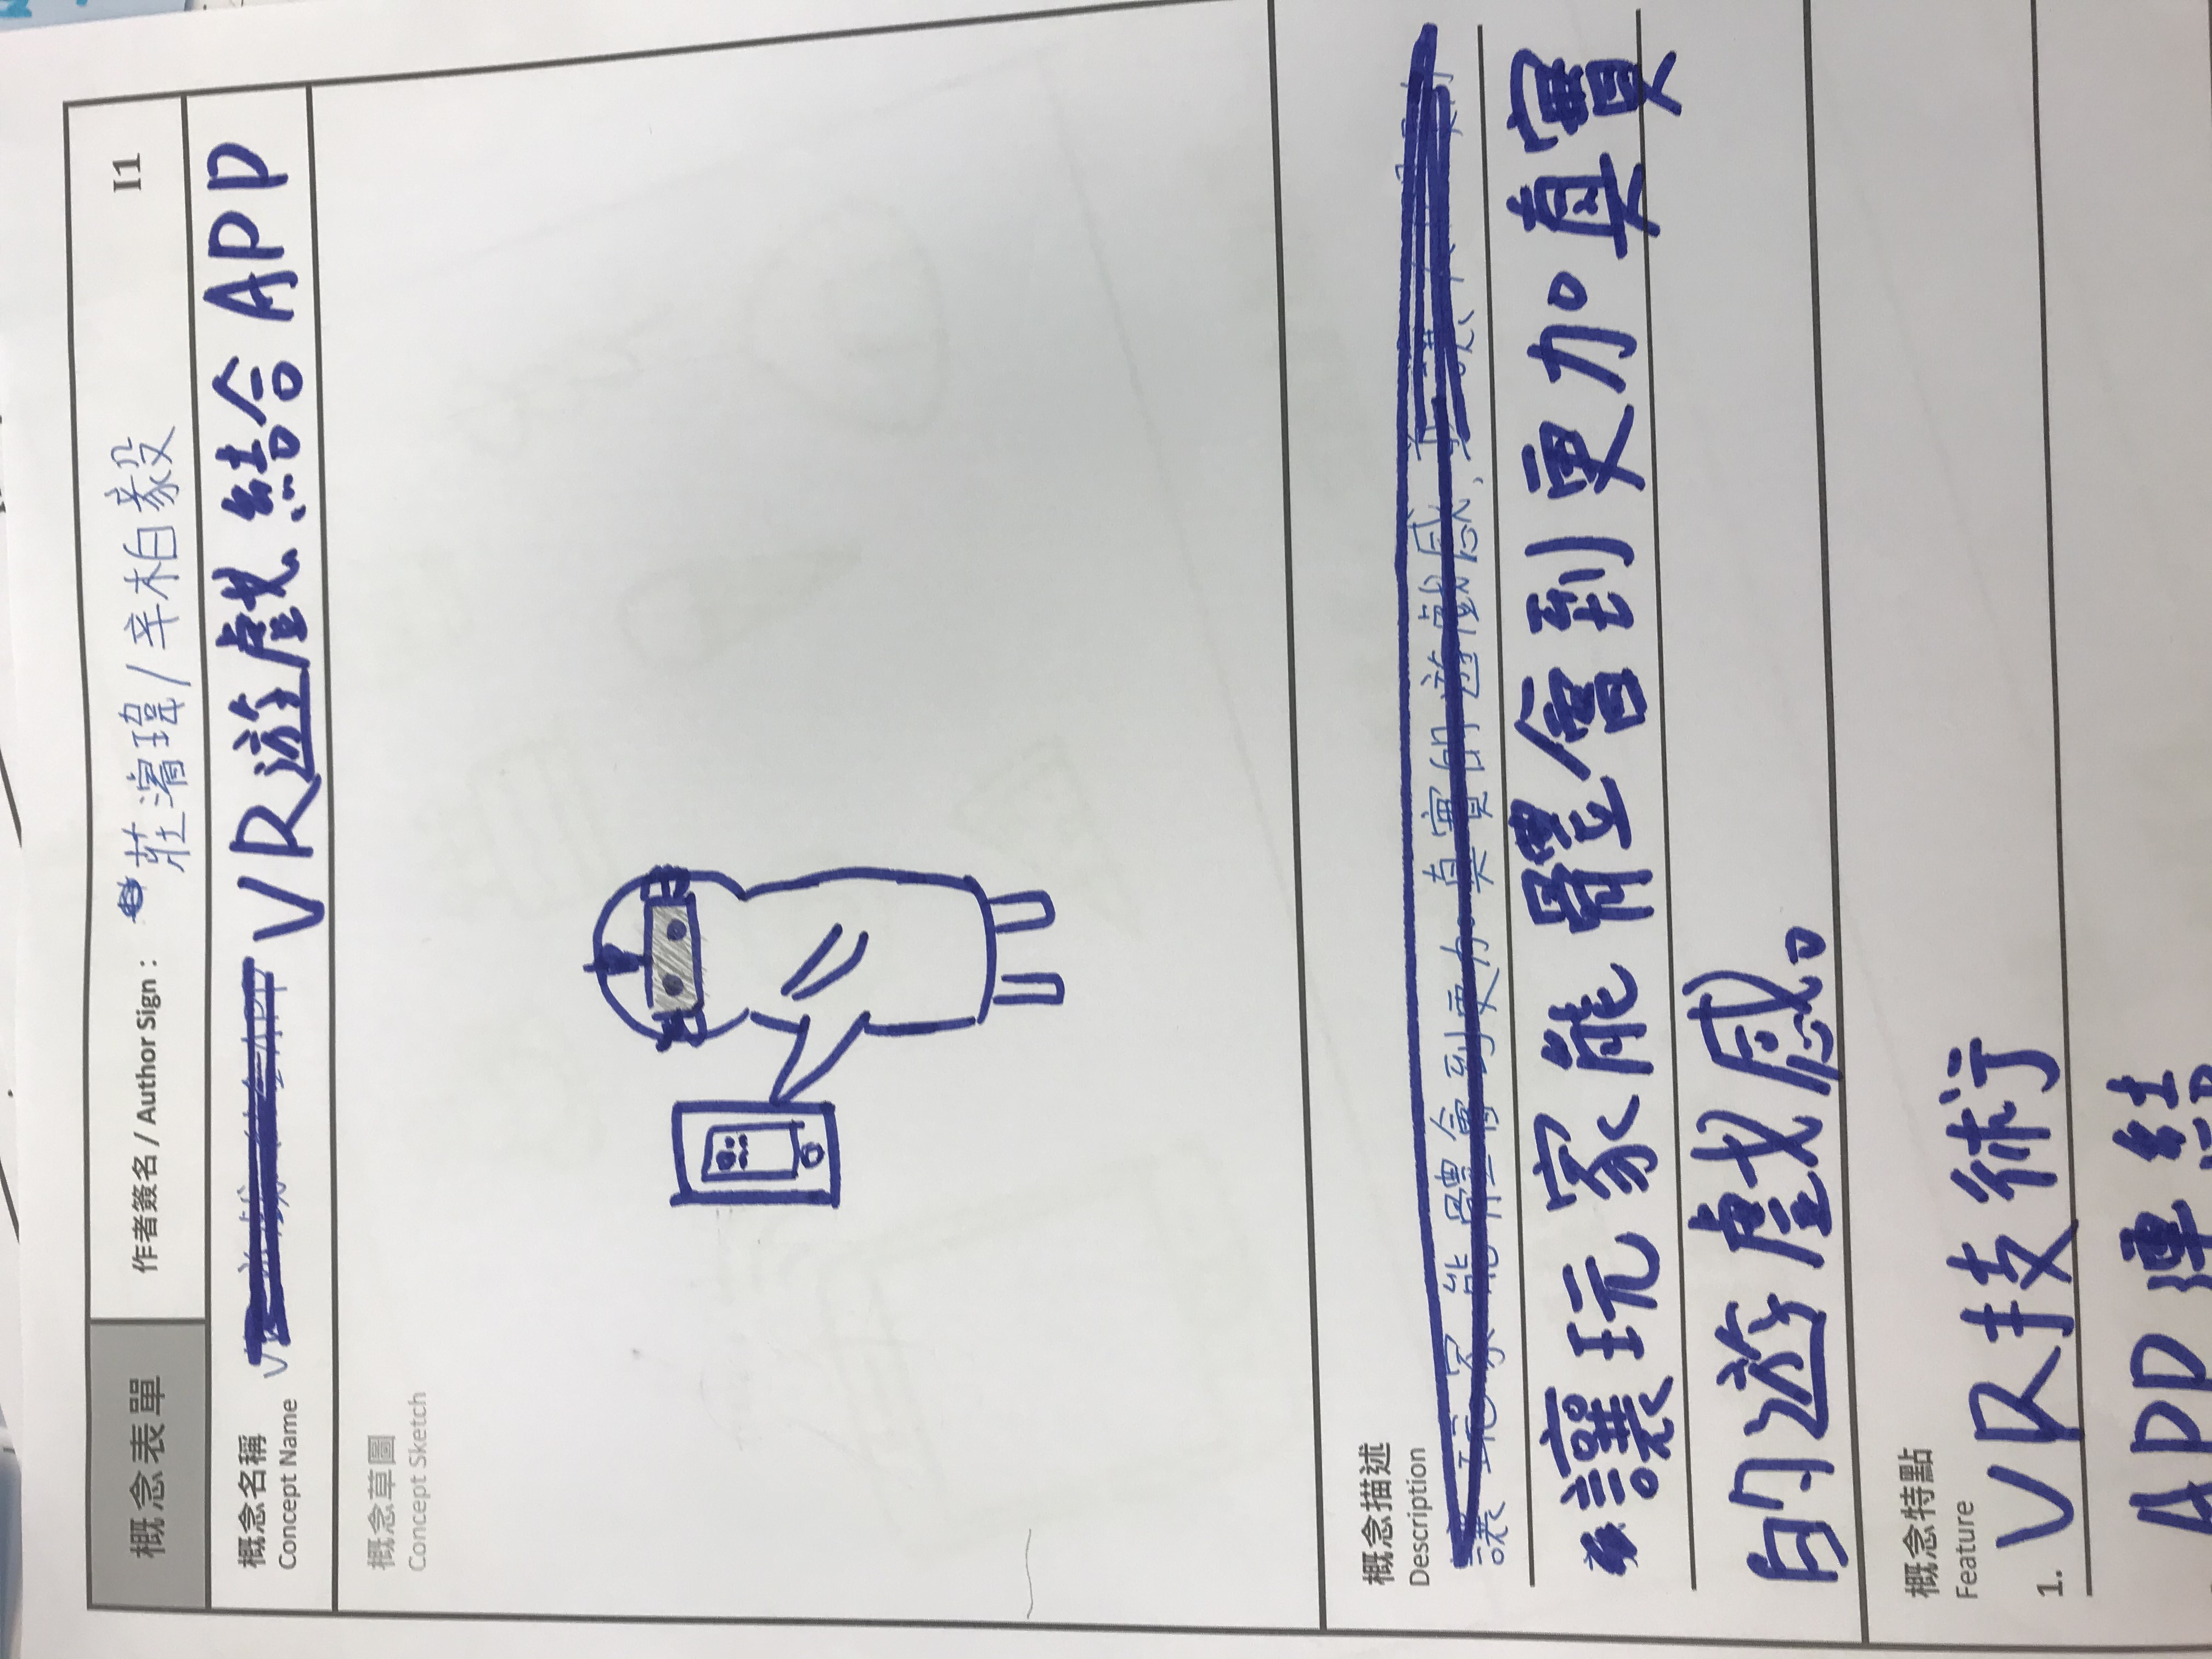 概念表單
作者簽名 / Author Sign： 莊濬瑋/辛柏毅
I1
概念名稱
Concept Name
VR遊戲結合APP
概念草圖
Concept Sketch
概念描述
Description
讓玩家能體會到更加真實的遊戲感,
讓玩家能體會到更加真實
的遊戲感。
概念特點
Feature
1. VR技術
APP連結